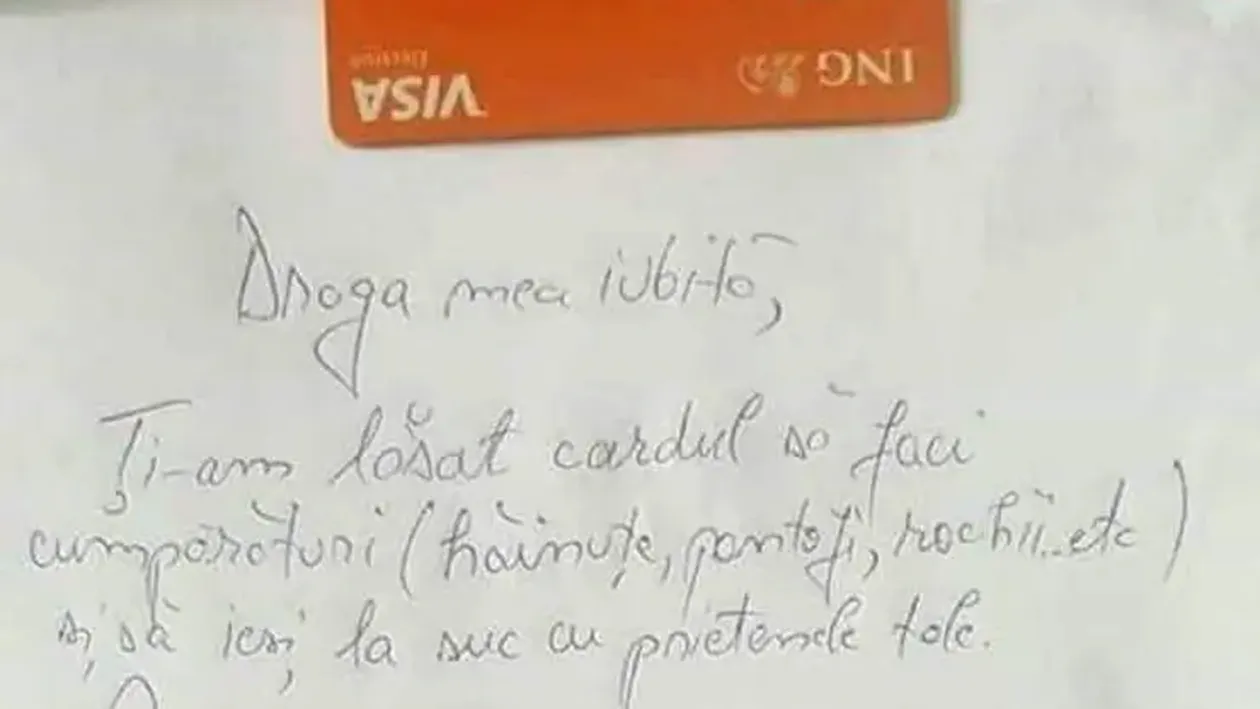 VISA
Electron
ING
Draga mea iubită,
Ți-am lăsat cardul să faci
cumpărături (hăinuțe, pantofi, rochii..etc)
și să ieși la suc cu prietenele tale.